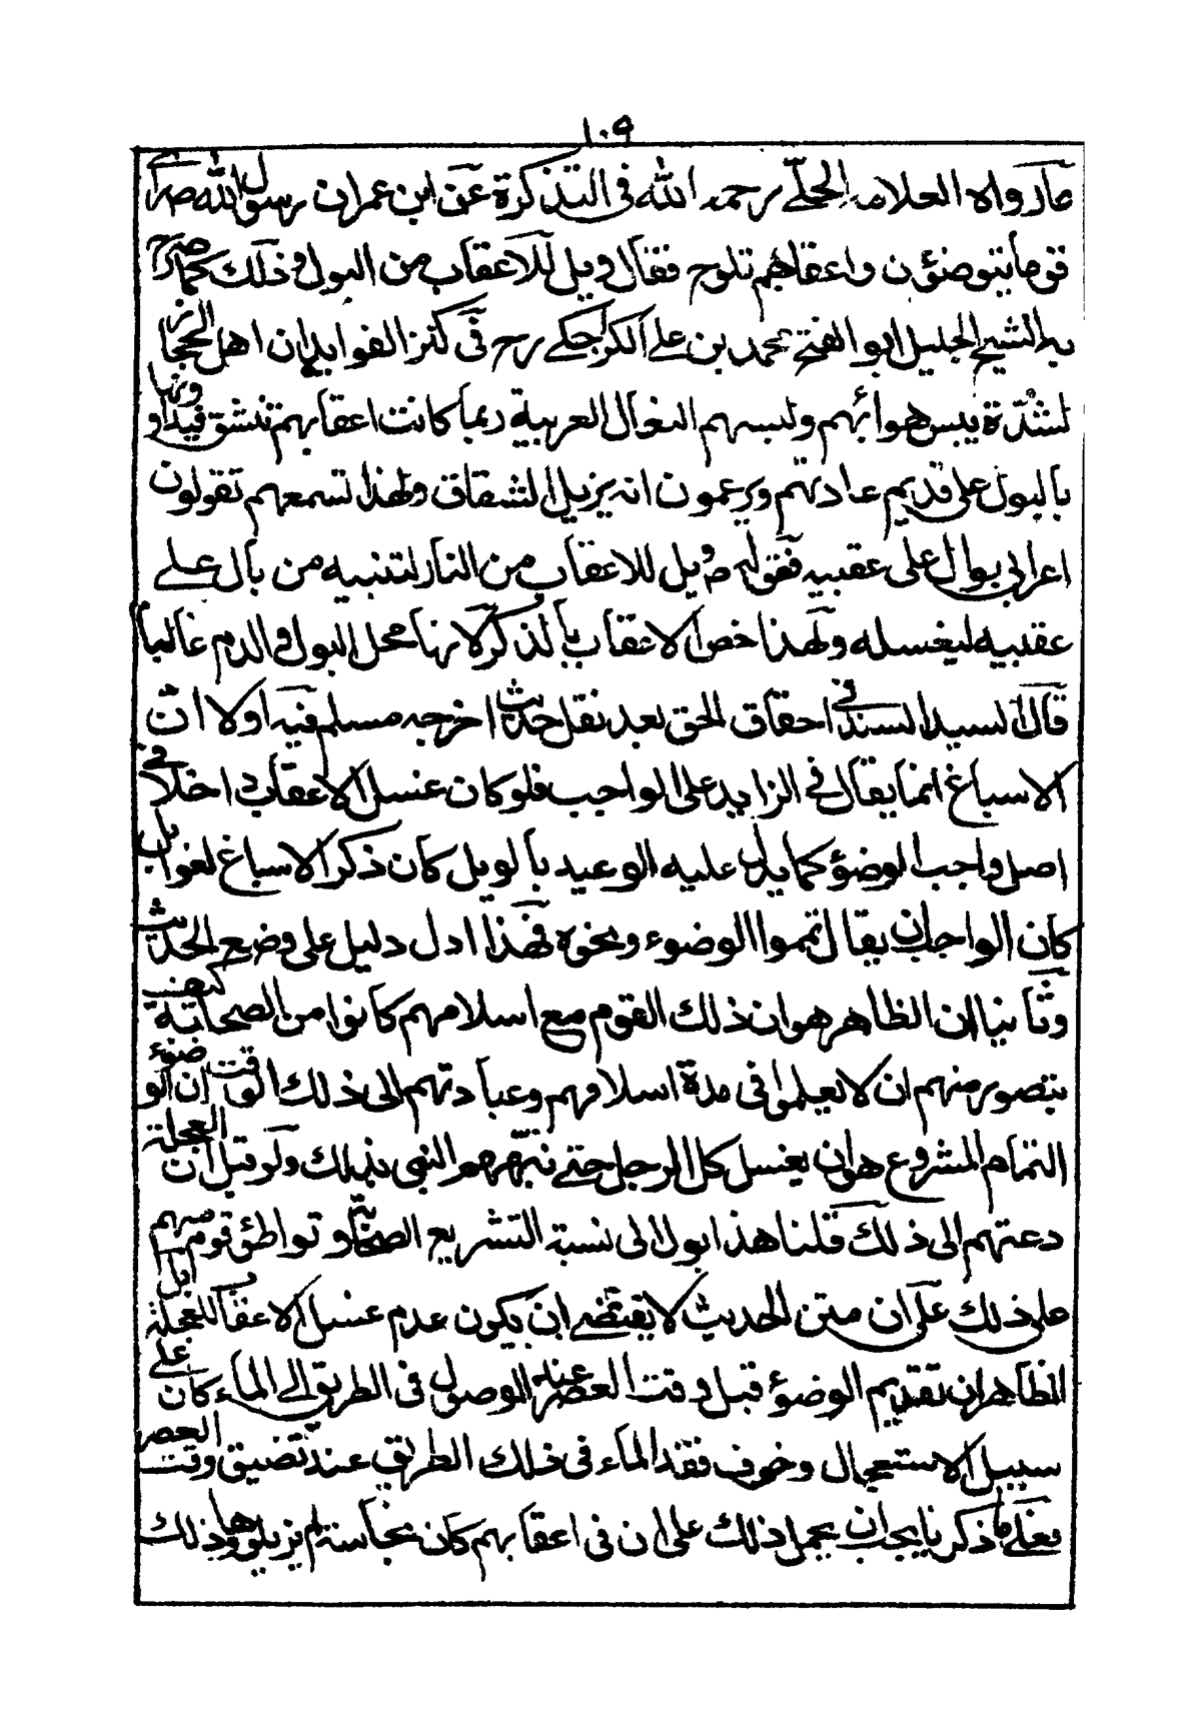 ١٠٩
ما رواه العلامه الحلّي رحمه الله في التذكرة عن ابن عمر ان رسول الله ص راى
قوما يتوضؤن واعقابهم تلوح فقال ويل للاعقاب من البول وذلك كما صرح
به الشيخ الجليل ابو الفتح محمد بن علي الكراجكي رح في كنز الفوايد ان اهل الحجاز
لشدّة يبس هوائهم ولبسهم النعال العربية ربما كانت اعقابهم تنشق فيداوونها
بالبول على قديم عادتهم ويزعمون انه يزيل الشقاق ولهذا تسمعهم تقولون
اعرابي بوال على عقبيه فقوله ص ويل للاعقاب من النار لتنبيه من بال على
عقبيه ليغسله ولهذا خص الاعقاب بالذكر لانها محل البول والدم غالبا
قال السيد السند في احقاق الحق بعد نقل حديث اخرجه مسلم فيه اولا ان
الاسباغ انما يقال في الزايد على الواجب فلو كان غسل الاعقاب داخلا في
اصل واجب الوضوء كما يدل عليه الوعيد بالويل كان ذكر الاسباغ لغوا بل
كان الواجب ان يقال تمموا الوضوء ونحوه فهذا ادل دليل على وضع الحديث
وثانيا ان الظاهر هو ان ذلك القوم مع اسلامهم كانوا من الصحابة كيف
يتصور منهم ان لا يعلموا في مدة اسلامهم وعبادتهم الى ذلك الوقت ان الوضوء
التمام المشروع هو ان يغسل كل الرجل حتى نبّههم النبي بذلك ولو قيل ان العجلة
دعتهم الى ذلك قلنا هذا يول الى نسبة التشريع الصحابة وتواطئ قوم منهم
على ذلك على ان متن الحديث لا يقتضي ان يكون عدم غسل الاعقاب للعجلة بل
الظاهر ان تقديم الوضوء قبل وقت العصر عند الوصول في الطريق الى الماء كان على
سبيل الاستعجال وخوف فقد الماء في ذلك الطريق عند تضيق وقت العصر
فعلى ما ذكرنا يجب ان يحمل ذلك على ان في اعقابهم كان نجاسة لم يزيلوها وذلك